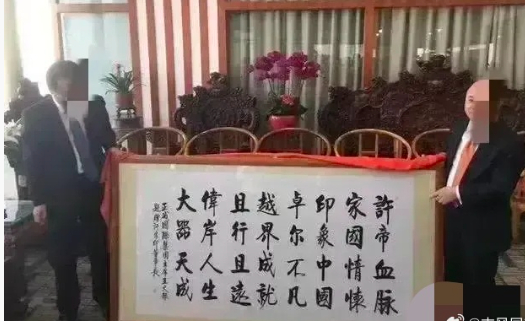 許帝血脈
家國情懐
印象中國
卓尔不凡
越界成就
且行且遠
偉岸人生
大器天成